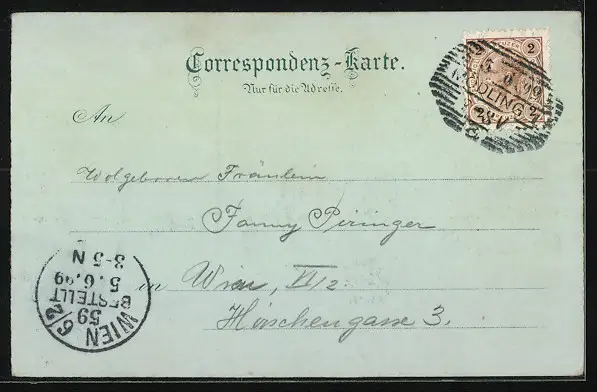 Correspondenz-Karte.
Nur für die Adresse.
2 2
5 6 99
MÖDLING
2
An
Wolgeboren Fräulein
Fanny Piringer
in Wien, VI/2.
Hirschengasse 3.
WIEN 6/2
59
BESTELLT
5.6.99
3-5 N